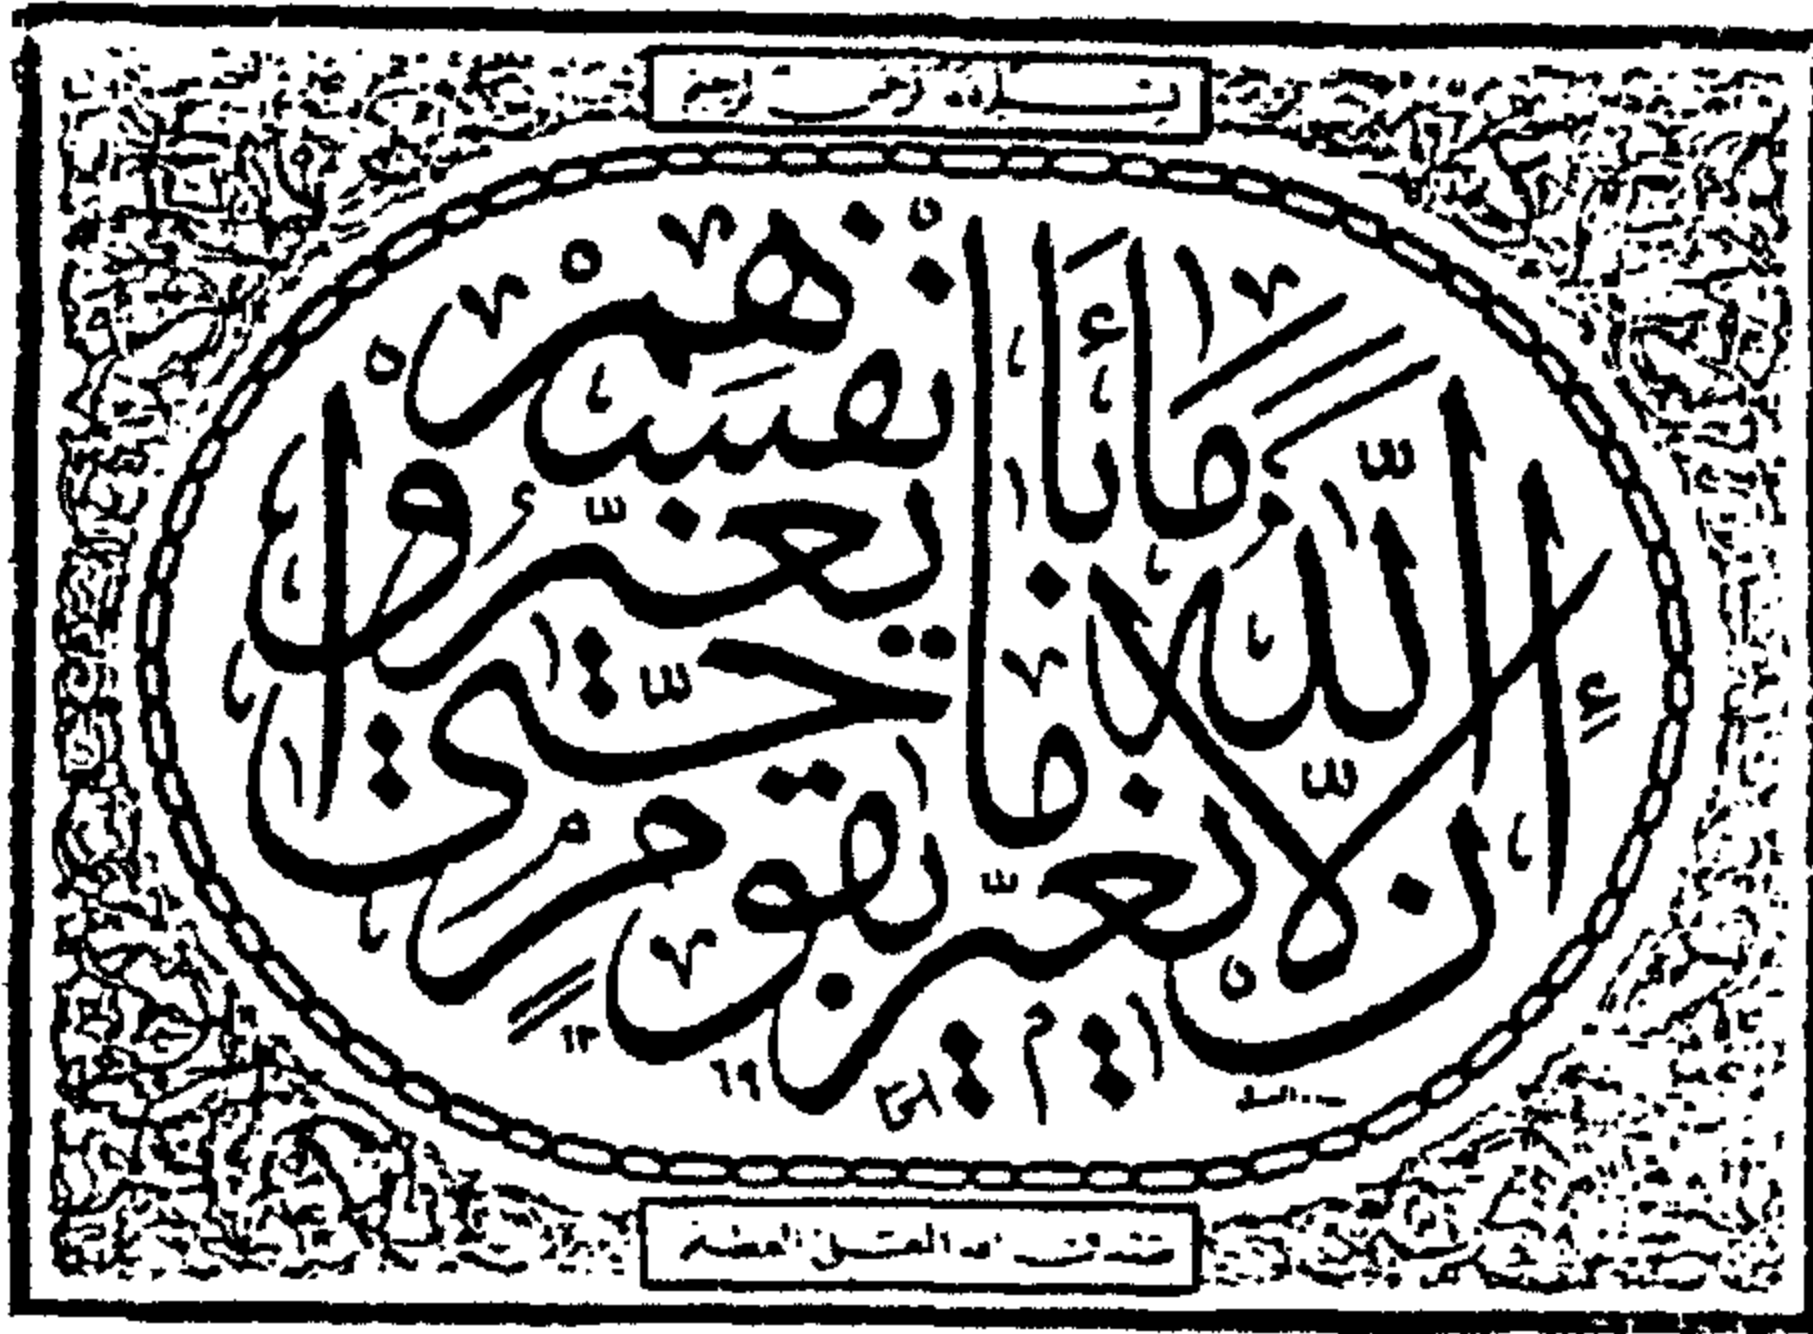 بسم الله الرحمن الرحيم
إن الله لا يغير ما بقوم حتى يغيروا ما بأنفسهم
صدق الله العلي العظيم